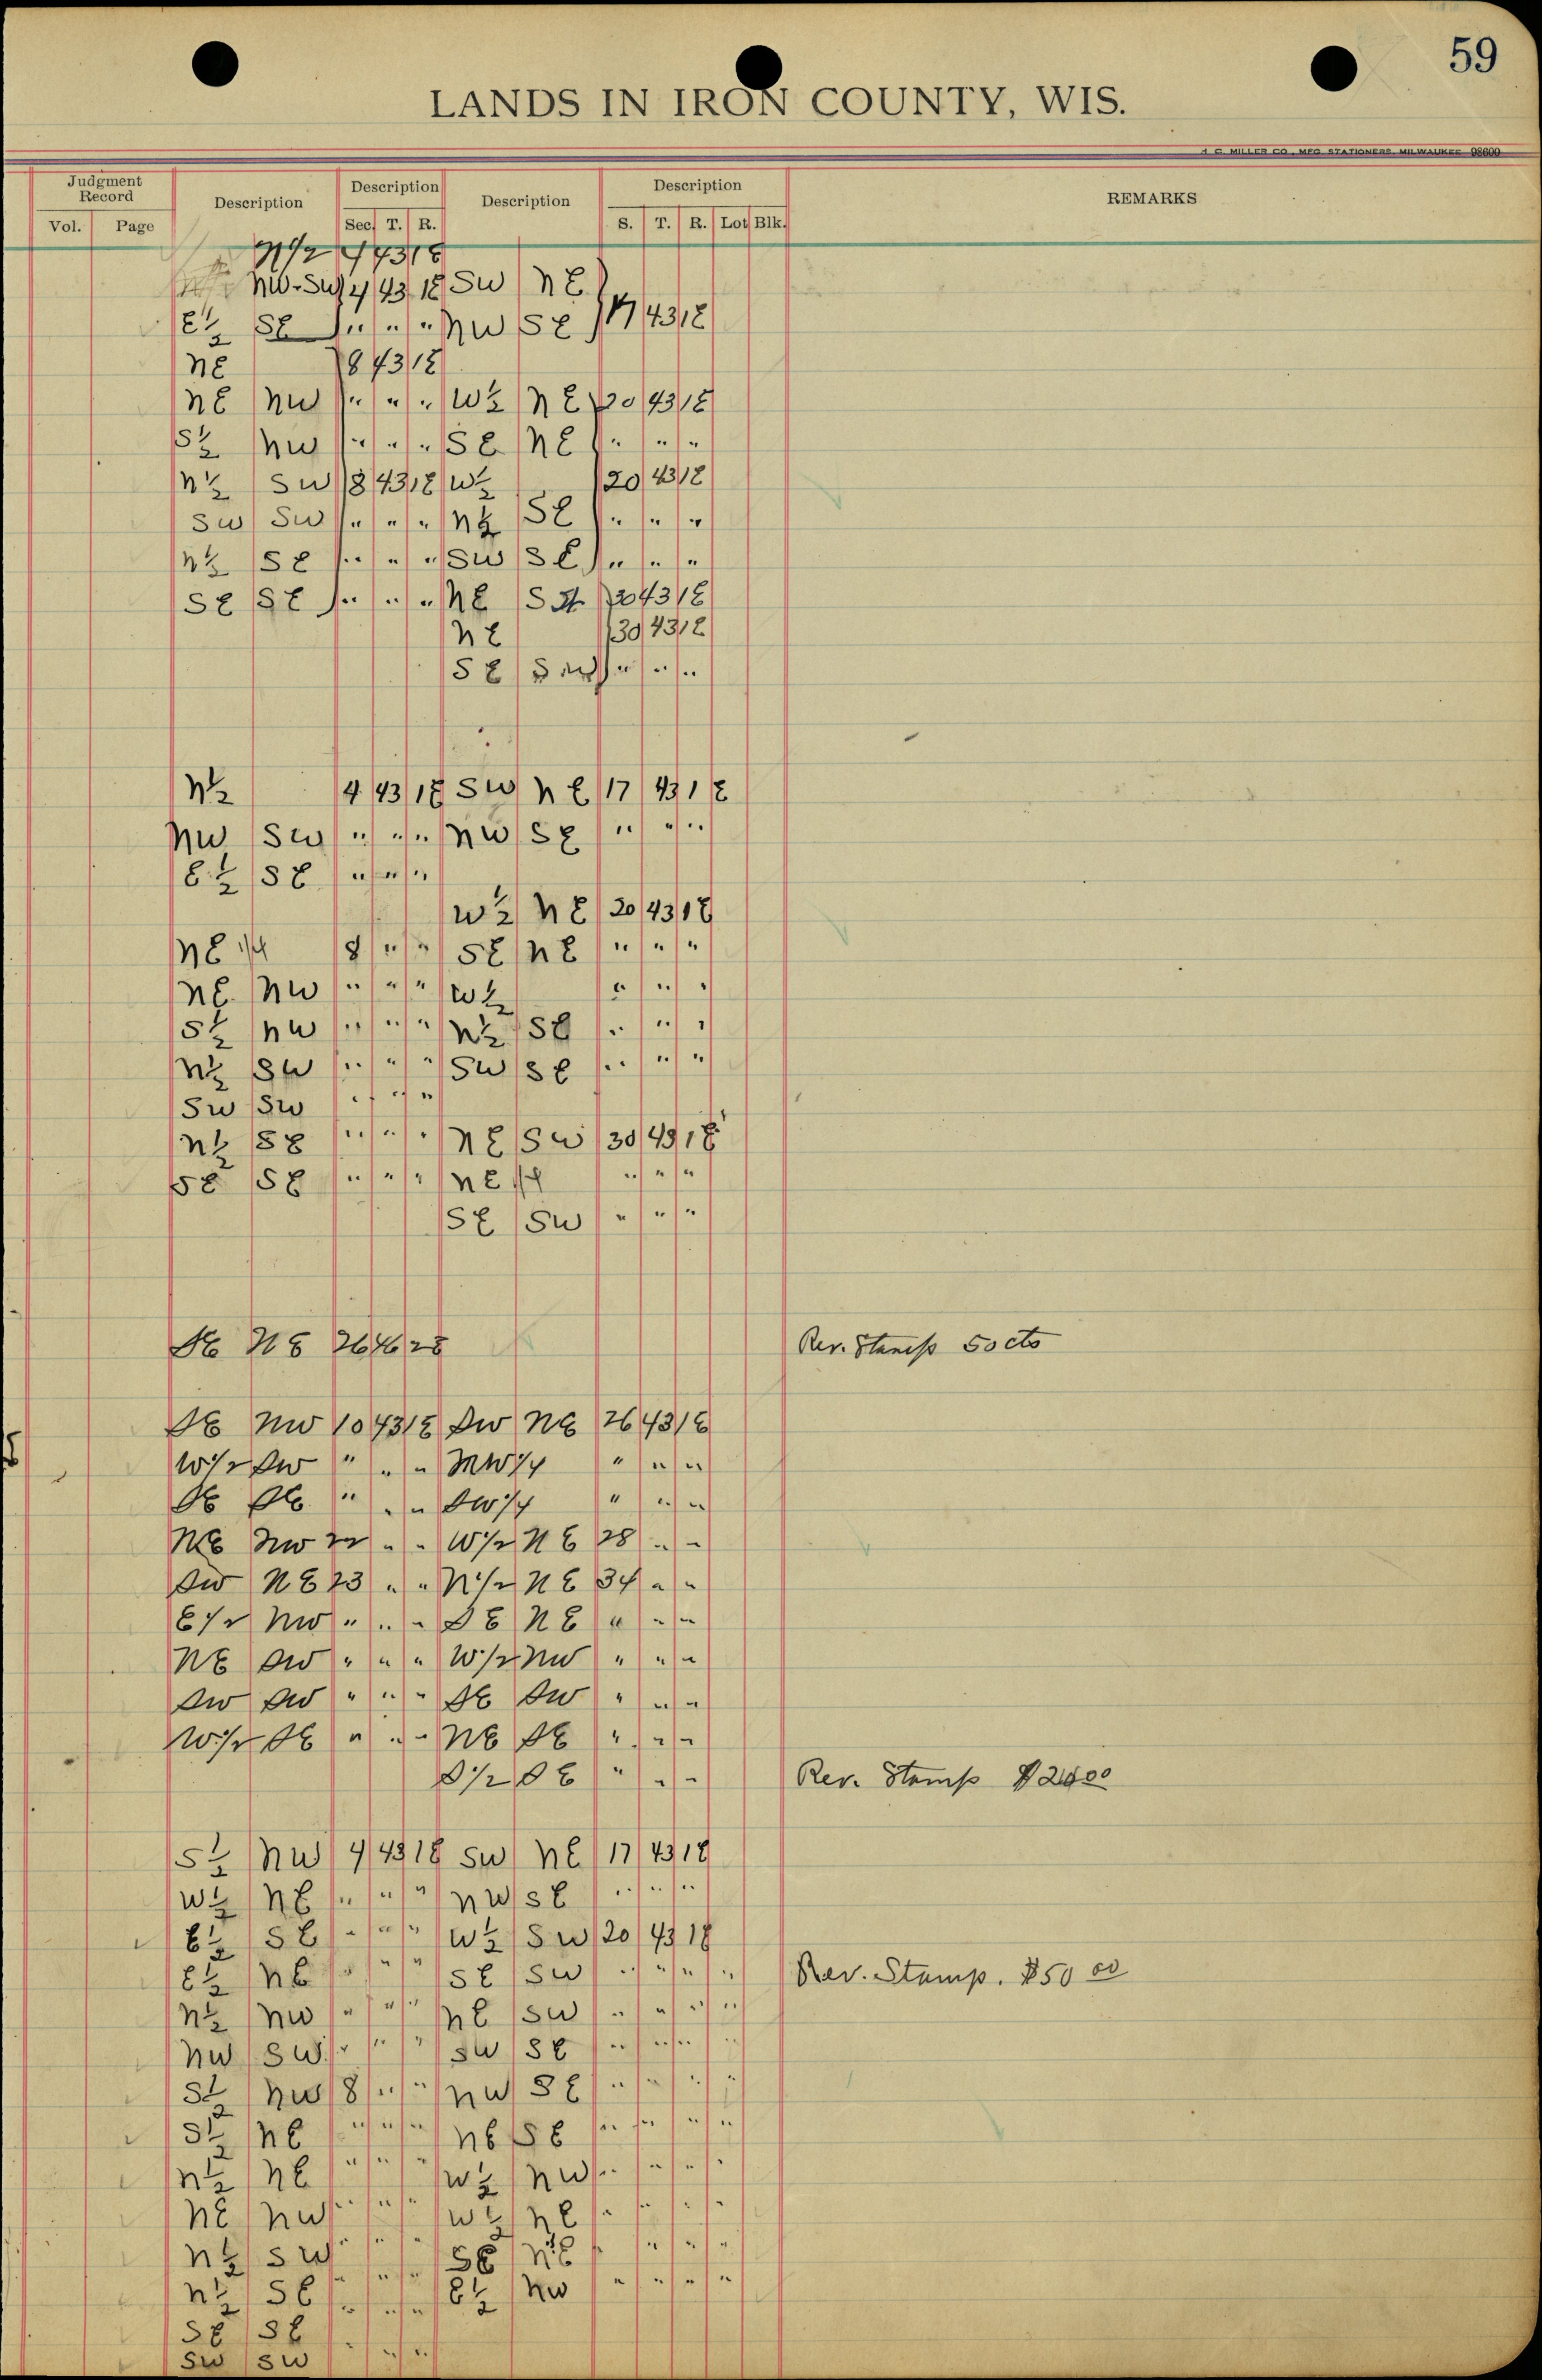 59
LANDS IN IRON COUNTY, WIS.
H. C. MILLER CO., MFG. STATIONERS, MILWAUKEE 98600
Judgment Record Description Description Description Description REMARKS
Vol. Page Sec. T. R. S. T. R. Lot Blk.
N 1/2 4 43 1E
NW-SW 4 43 1E SW NE
E 1/2 SE " " " NW SE 17 43 1E
NE 8 43 1E
NE NW " " " W 1/2 NE 20 43 1E
S 1/2 NW " " " SE NE " " "
N 1/2 SW 8 43 1E W 1/2 20 43 1E
SW SW " " " N 1/2 SE " " "
N 1/2 SE " " " SW SE " " "
SE SE " " " NE 30 43 1E
NE 30 43 1E
SE SW " " "
N 1/2 4 43 1E SW NE 17 43 1E
NW SW " " " NW SE " " "
E 1/2 SE " " "
W 1/2 NE 20 43 1E
NE 1/4 8 " " SE NE " " "
NE NW " " " W 1/2 " " "
S 1/2 NW " " " N 1/2 SE " " "
N 1/2 SW " " " SW SE " " "
SW SW " " "
N 1/2 SE " " " NE SW 30 43 1E
SE SE " " " NE 1/4 " " "
SE SW " " "
SE NE 26 46 2E Rev. Stamp 50 cts
SE NW 10 43 1E SW NE 26 43 1E
W 1/2 SW " " " NW 1/4 " " "
SE SE " " " SW 1/4 " " "
NE NW 22 " " W 1/2 NE 28 " "
SW NE 23 " " N 1/2 NE 34 " "
E 1/2 NW " " " SE NE " " "
NE SW " " " W 1/2 NW " " "
SW SW " " " SE SW " " "
W 1/2 SE " " " NE SE " " "
S 1/2 SE " " " Rev. Stamp
S 1/2 NW 4 43 1E SW NE 17 43 1E
W 1/2 NE " " " NW SE " " "
E 1/2 SE " " " W 1/2 SW 20 43 1E
E 1/2 NE " " " SE SW " " " " Rev. Stamp. $50 00
N 1/2 NW " " " NE SW " " " "
NW SW " " " SW SE " " " "
S 1/2 NW 8 " " NW SE " " " "
S 1/2 NE " " " NE SE " " " "
N 1/2 NE " " " W 1/2 NW " " " "
NE NW " " " W 1/2 NE " " " "
N 1/2 SW " " " SE NE " " " "
N 1/2 SE " " " E 1/2 NW " " " "
SE SE " " "
SW SW " " "